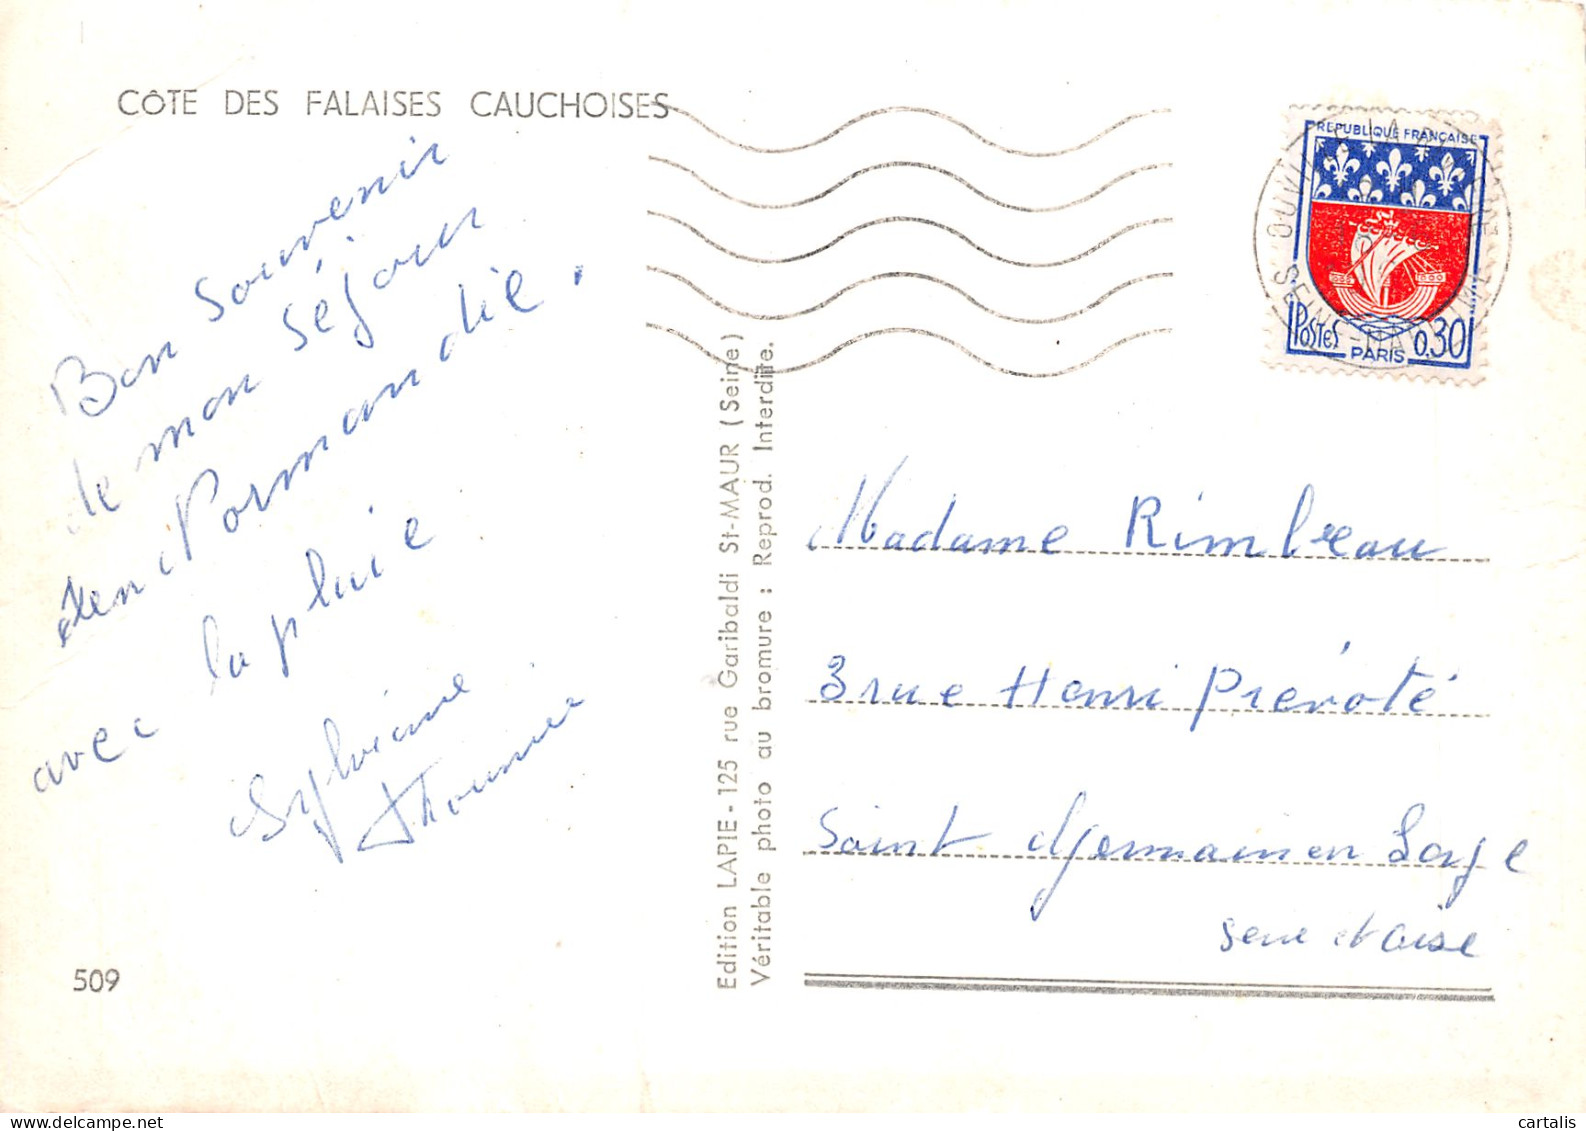 CÔTE DES FALAISES CAUCHOISES
Bon souvenir
de mon séjour
en Normandie,
avec la pluie
Sylviane
509
Edition LAPIE - 125 rue Garibaldi St-MAUR (Seine)
Véritable photo au bromure : Reprod. Interdite.
REPUBLIQUE FRANÇAISE
POSTES
PARIS
0,30
SEINE-MARITIME
Madame Rimbeau
3 rue Henri Prévoté
Saint Germain en Laye
Seine et Oise
cartalis